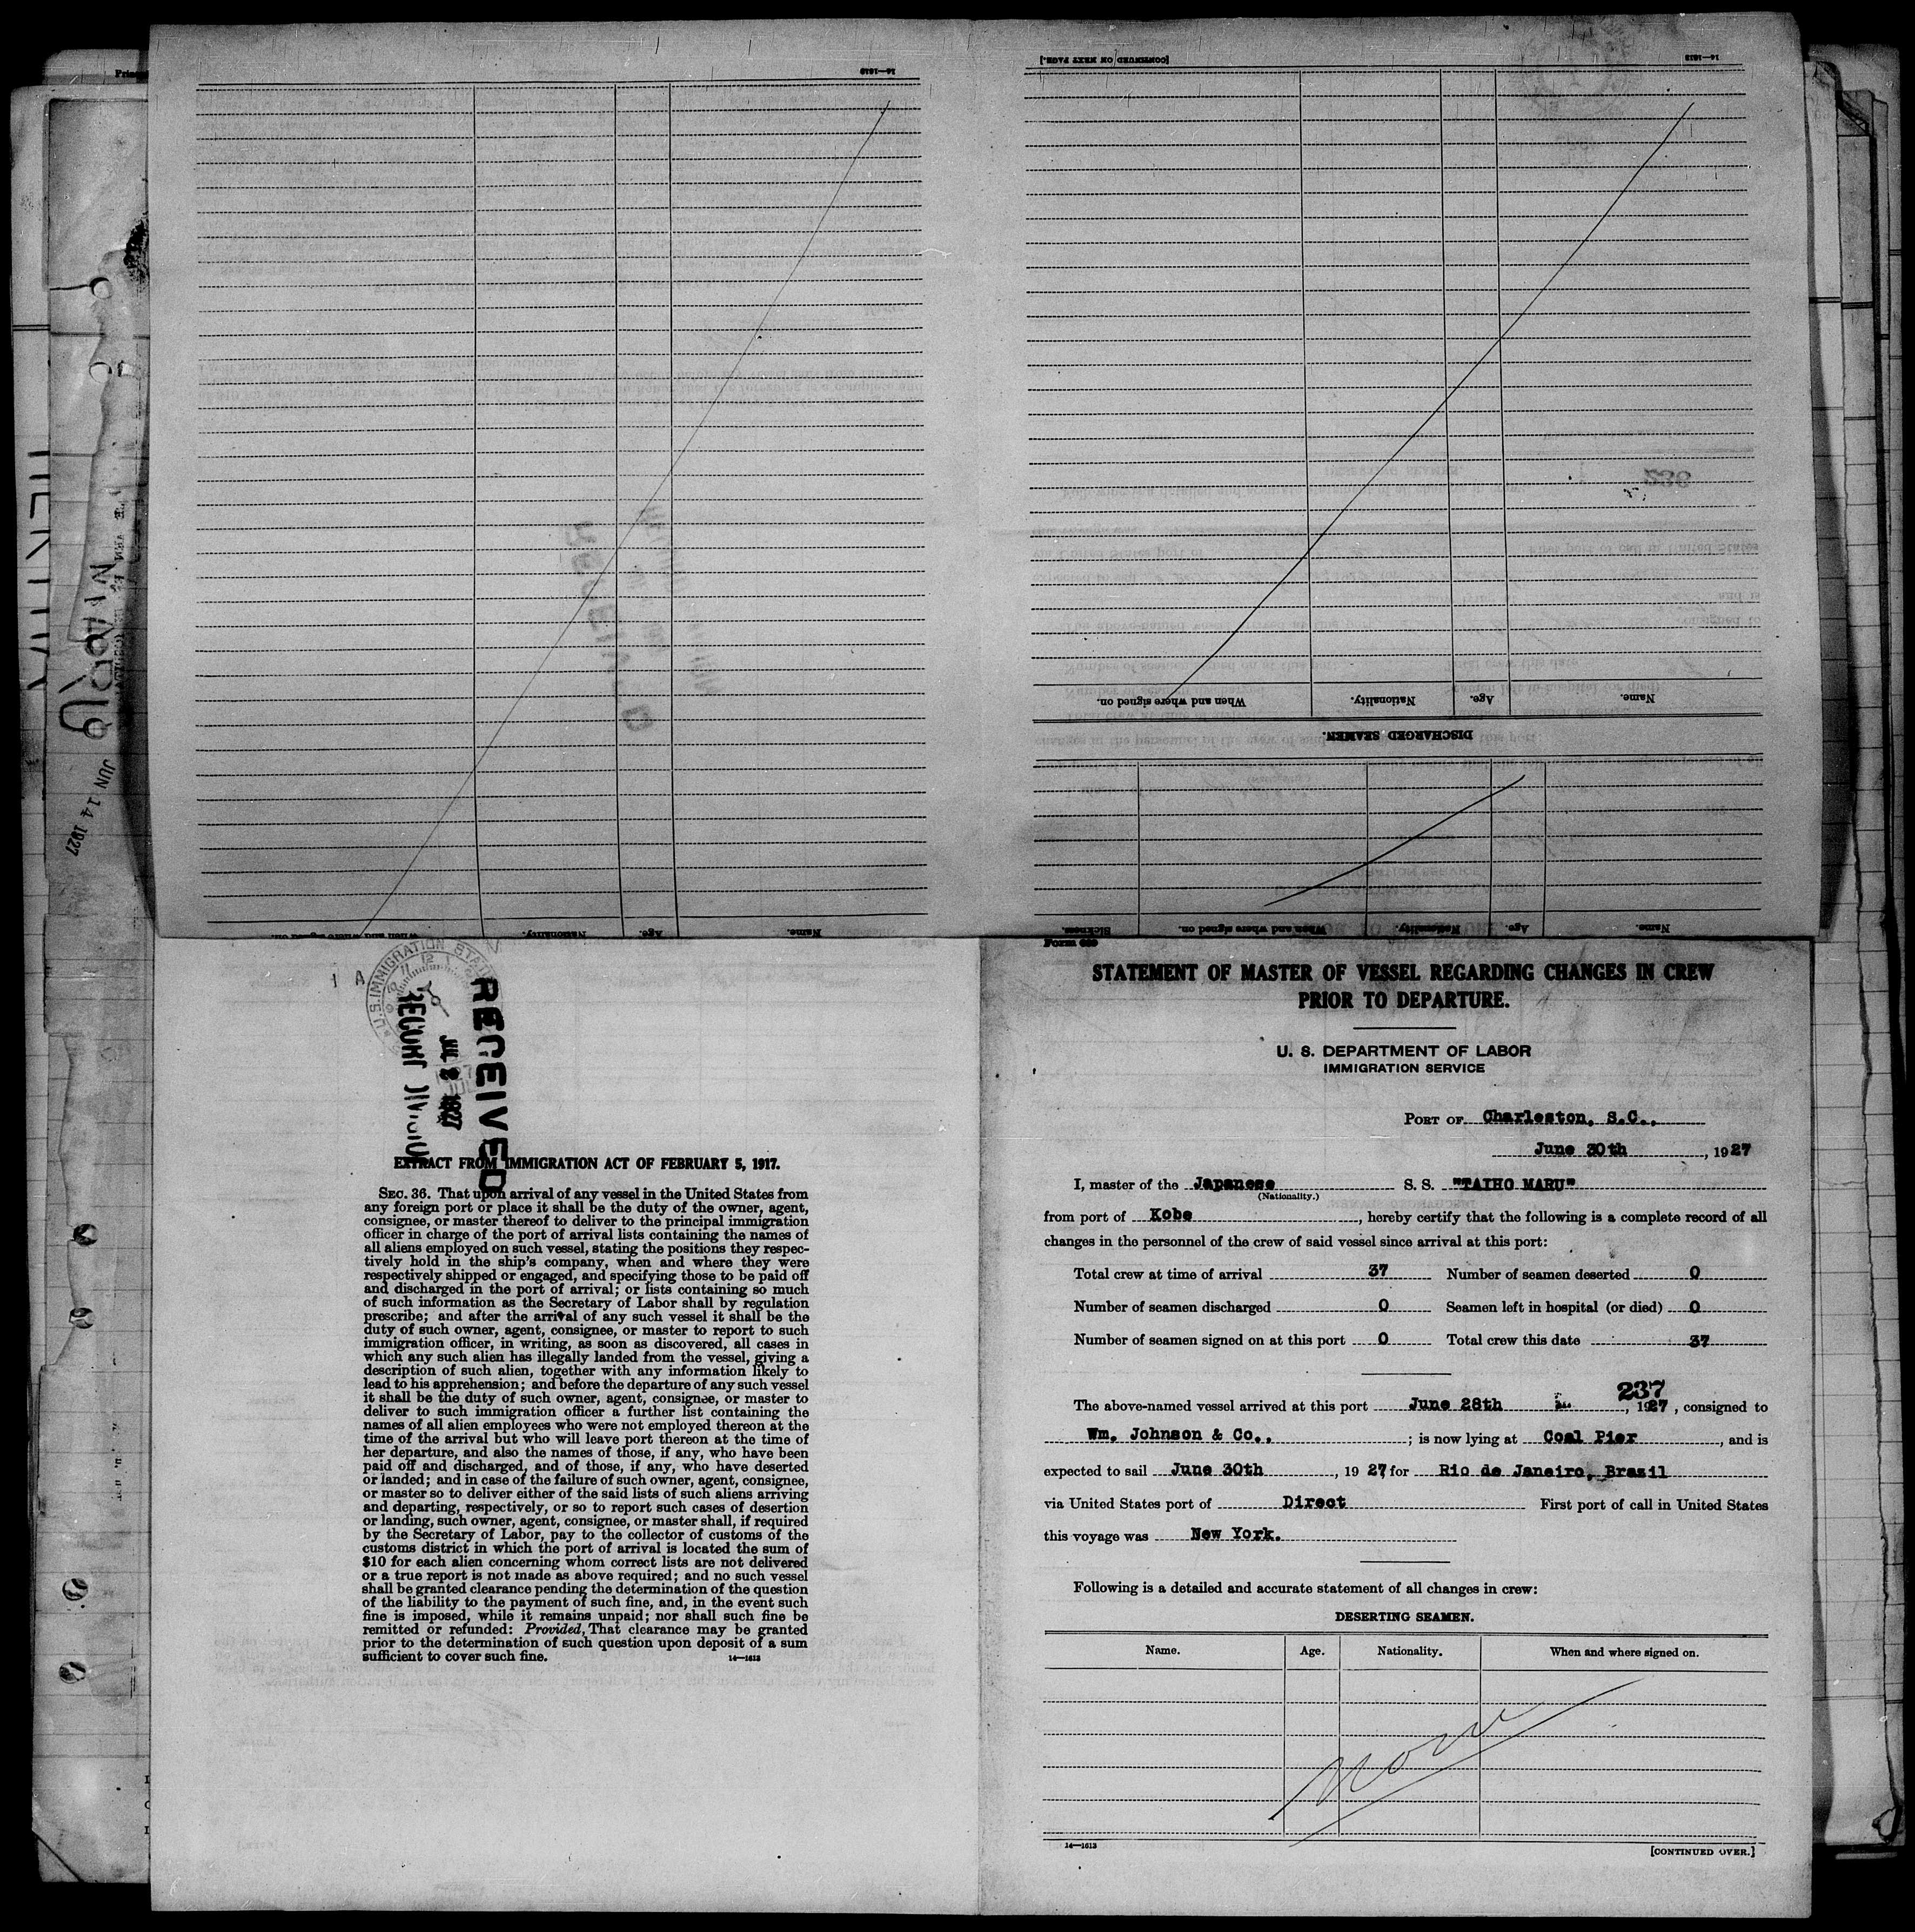 [CONTINUED ON NEXT PAGE.]
14—1613
14—1613
Name.
Age.
Nationality.
When and where signed on.
DISCHARGED SEAMEN.
Name.
Age.
Nationality.
When and where signed on.
Sickness.
Name.
Age.
Nationality.
When and where signed on.
238
RECEIVED
JUN 14 1927
1 A
U.S. IMMIGRATION STATION
RECEIVED
JUL 2 1927
RECORD DIVISION
EXTRACT FROM IMMIGRATION ACT OF FEBRUARY 5, 1917.
SEC. 36. That upon arrival of any vessel in the United States from
any foreign port or place it shall be the duty of the owner, agent,
consignee, or master thereof to deliver to the principal immigration
officer in charge of the port of arrival lists containing the names of
all aliens employed on such vessel, stating the positions they respec-
tively hold in the ship's company, when and where they were
respectively shipped or engaged, and specifying those to be paid off
and discharged in the port of arrival; or lists containing so much
of such information as the Secretary of Labor shall by regulation
prescribe; and after the arrival of any such vessel it shall be the
duty of such owner, agent, consignee, or master to report to such
immigration officer, in writing, as soon as discovered, all cases in
which any such alien has illegally landed from the vessel, giving a
description of such alien, together with any information likely to
lead to his apprehension; and before the departure of any such vessel
it shall be the duty of such owner, agent, consignee, or master to
deliver to such immigration officer a further list containing the
names of all alien employees who were not employed thereon at the
time of the arrival but who will leave port thereon at the time of
her departure, and also the names of those, if any, who have been
paid off and discharged, and of those, if any, who have deserted
or landed; and in case of the failure of such owner, agent, consignee,
or master so to deliver either of the said lists of such aliens arriving
and departing, respectively, or so to report such cases of desertion
or landing, such owner, agent, consignee, or master shall, if required
by the Secretary of Labor, pay to the collector of customs of the
customs district in which the port of arrival is located the sum of
$10 for each alien concerning whom correct lists are not delivered
or a true report is not made as above required; and no such vessel
shall be granted clearance pending the determination of the question
of the liability to the payment of such fine, and, in the event such
fine is imposed, while it remains unpaid; nor shall such fine be
remitted or refunded: Provided, That clearance may be granted
prior to the determination of such question upon deposit of a sum
sufficient to cover such fine.
14—1613
STATEMENT OF MASTER OF VESSEL REGARDING CHANGES IN CREW
PRIOR TO DEPARTURE.
U. S. DEPARTMENT OF LABOR
IMMIGRATION SERVICE
PORT OF Charleston, S.C.,
June 30th, 1927
I, master of the Japanese S. S. "TAIHO MARU"
(Nationality.)
from port of Kobe, hereby certify that the following is a complete record of all
changes in the personnel of the crew of said vessel since arrival at this port:
Total crew at time of arrival 37 Number of seamen deserted 0
Number of seamen discharged 0 Seamen left in hospital (or died) 0
Number of seamen signed on at this port 0 Total crew this date 37
237
The above-named vessel arrived at this port June 28th, 1927, consigned to
Wm. Johnson & Co.,; is now lying at Coal Pier, and is
expected to sail June 30th, 1927 for Rio de Janeiro, Brasil
via United States port of Direct First port of call in United States
this voyage was New York.
Following is a detailed and accurate statement of all changes in crew:
DESERTING SEAMEN.
Name. Age. Nationality. When and where signed on.
None
14—1613
[CONTINUED OVER.]